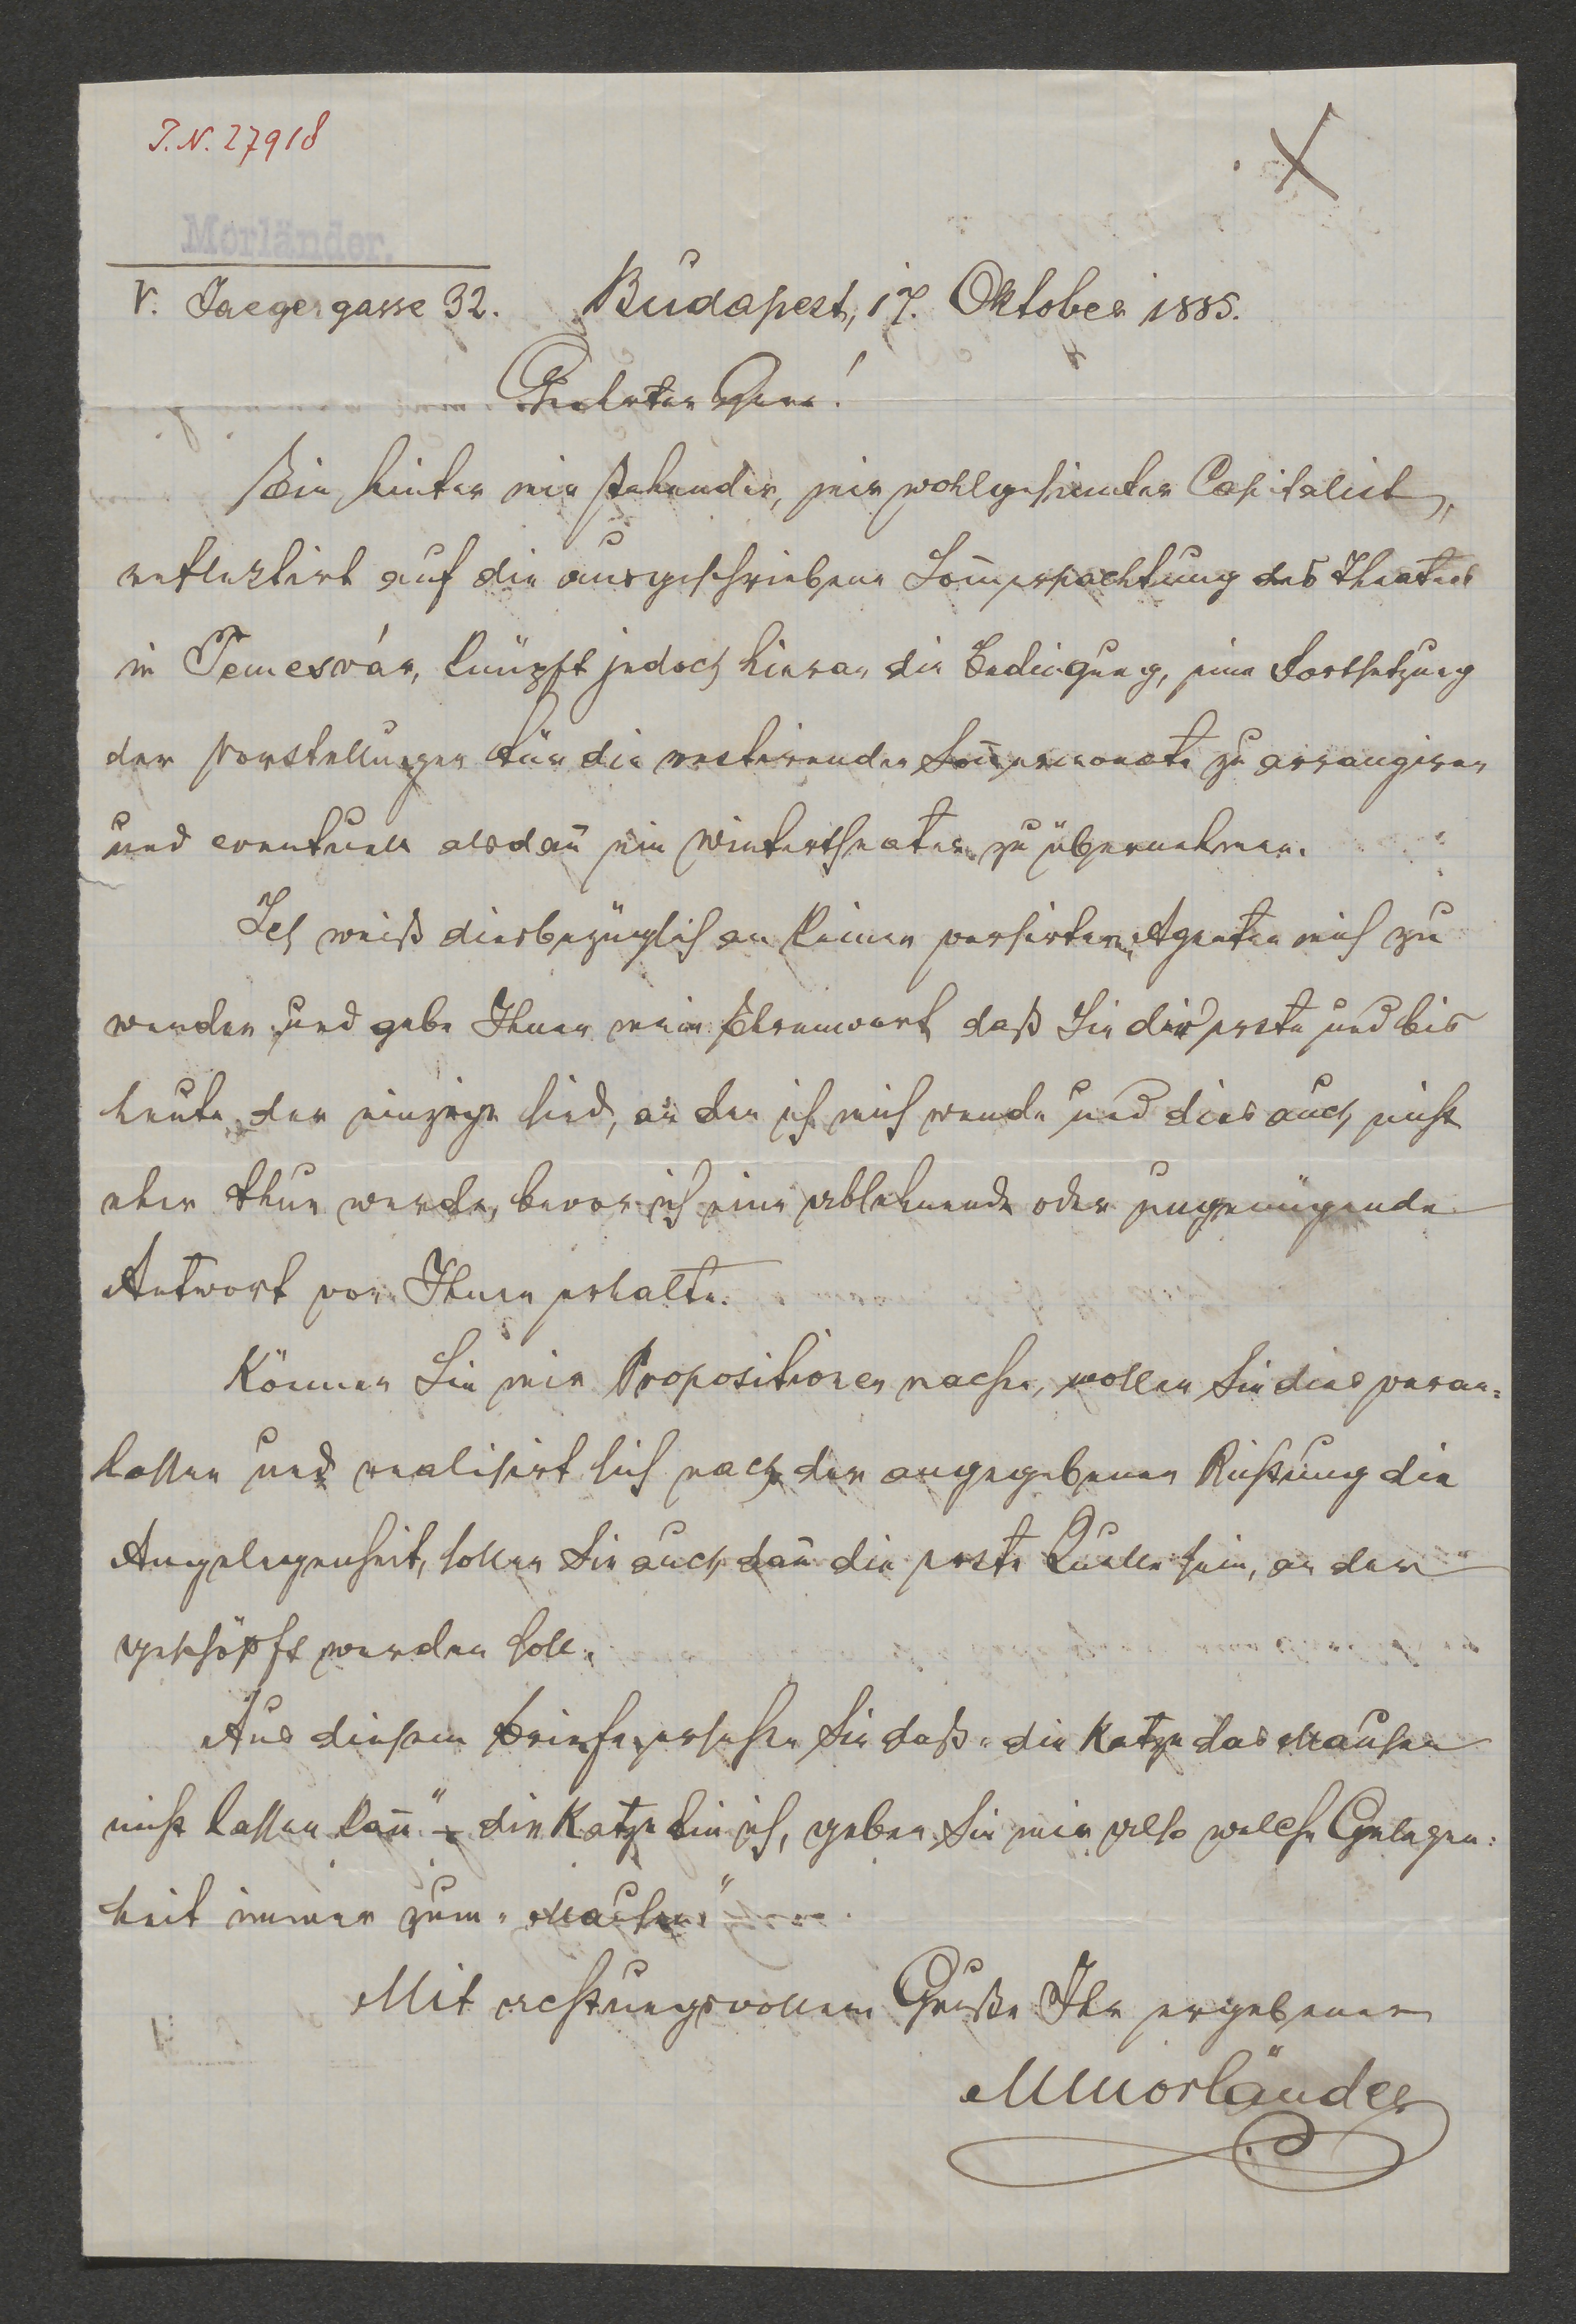 I.N. 27918
Morländer.
V. Jaegergasse 32. Budapest, 17. Oktober 1885.
Geehrter Herr!
Ein hinter mir stehender, mir wohlgesinnter Capitalist,
reflektirt auf die ausgeschriebene Som̄erpachtung des Theaters
in Temesvár, knüpft jedoch hieran die Bedingung, eine Fortsetzung
der Vorstellungen für die restirenden Som̄ermonate zu arrangiren
und eventuell alsdan̄ ein Wintertheater zu übernehmen.
Ich weiß diesbezüglich an keinen versirteren Agenten mich zu
wenden und gebe Ihnen mein Ehrenwort daß Sie der erste und bis
heute der einzige sind, an den ich mich wende und dies auch nicht
eher thun werde, bevor ich eine ablehnende oder ungenügende
Antwort von Ihnen erhalte.
Können Sie mir Propositionen machen, wollen Sie dies veran=
lassen und realisirt sich nach der angegebenen Richtung die
Angelegenheit, sollen Sie auch dan̄ die erste Quelle sein, an der
geschöpft werden soll.
Aus diesem Briefe ersehen Sie daß „die Katze das Mausen
nicht lassen kan̄" – die Katze bin ich, geben Sie mir also welche Gelegen=
heit immer zum „Mausen"
Mit achtungsvollem Gruße Ihr ergebener
MMorländer